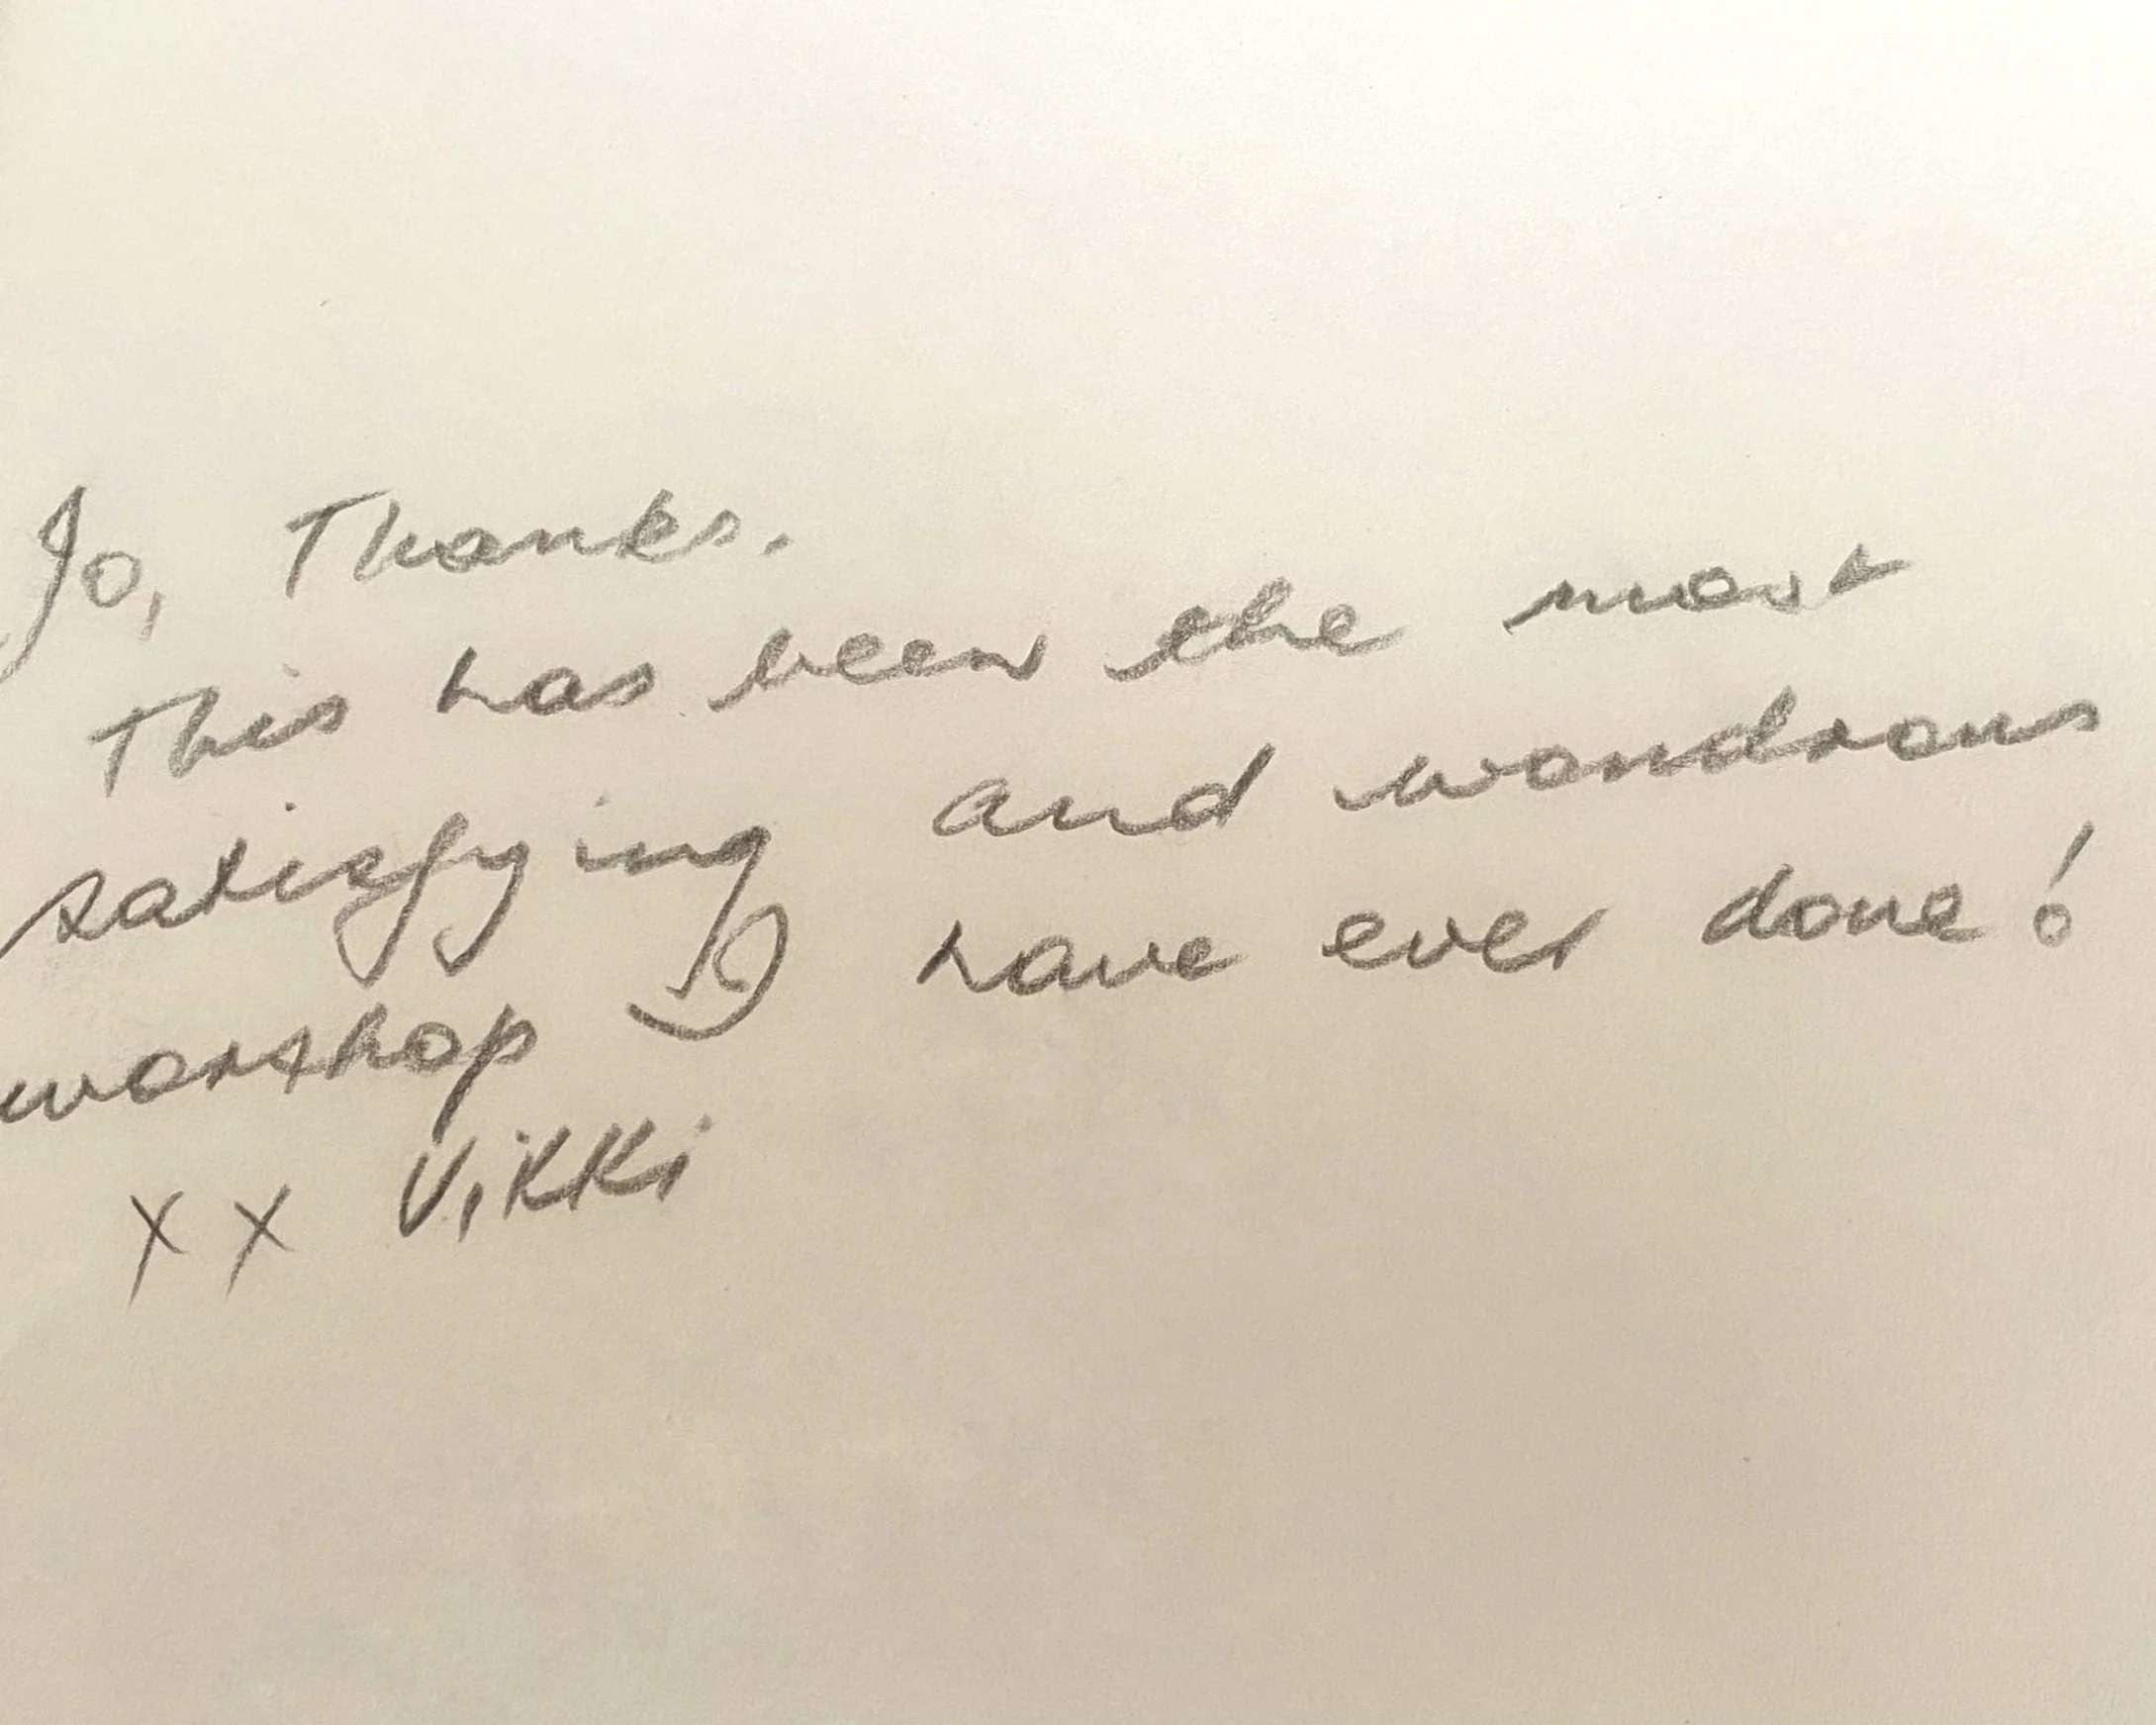 Jo, Thanks.
This has been the most
satisfying and wondrous
worshop I have ever done!
xx Vikki